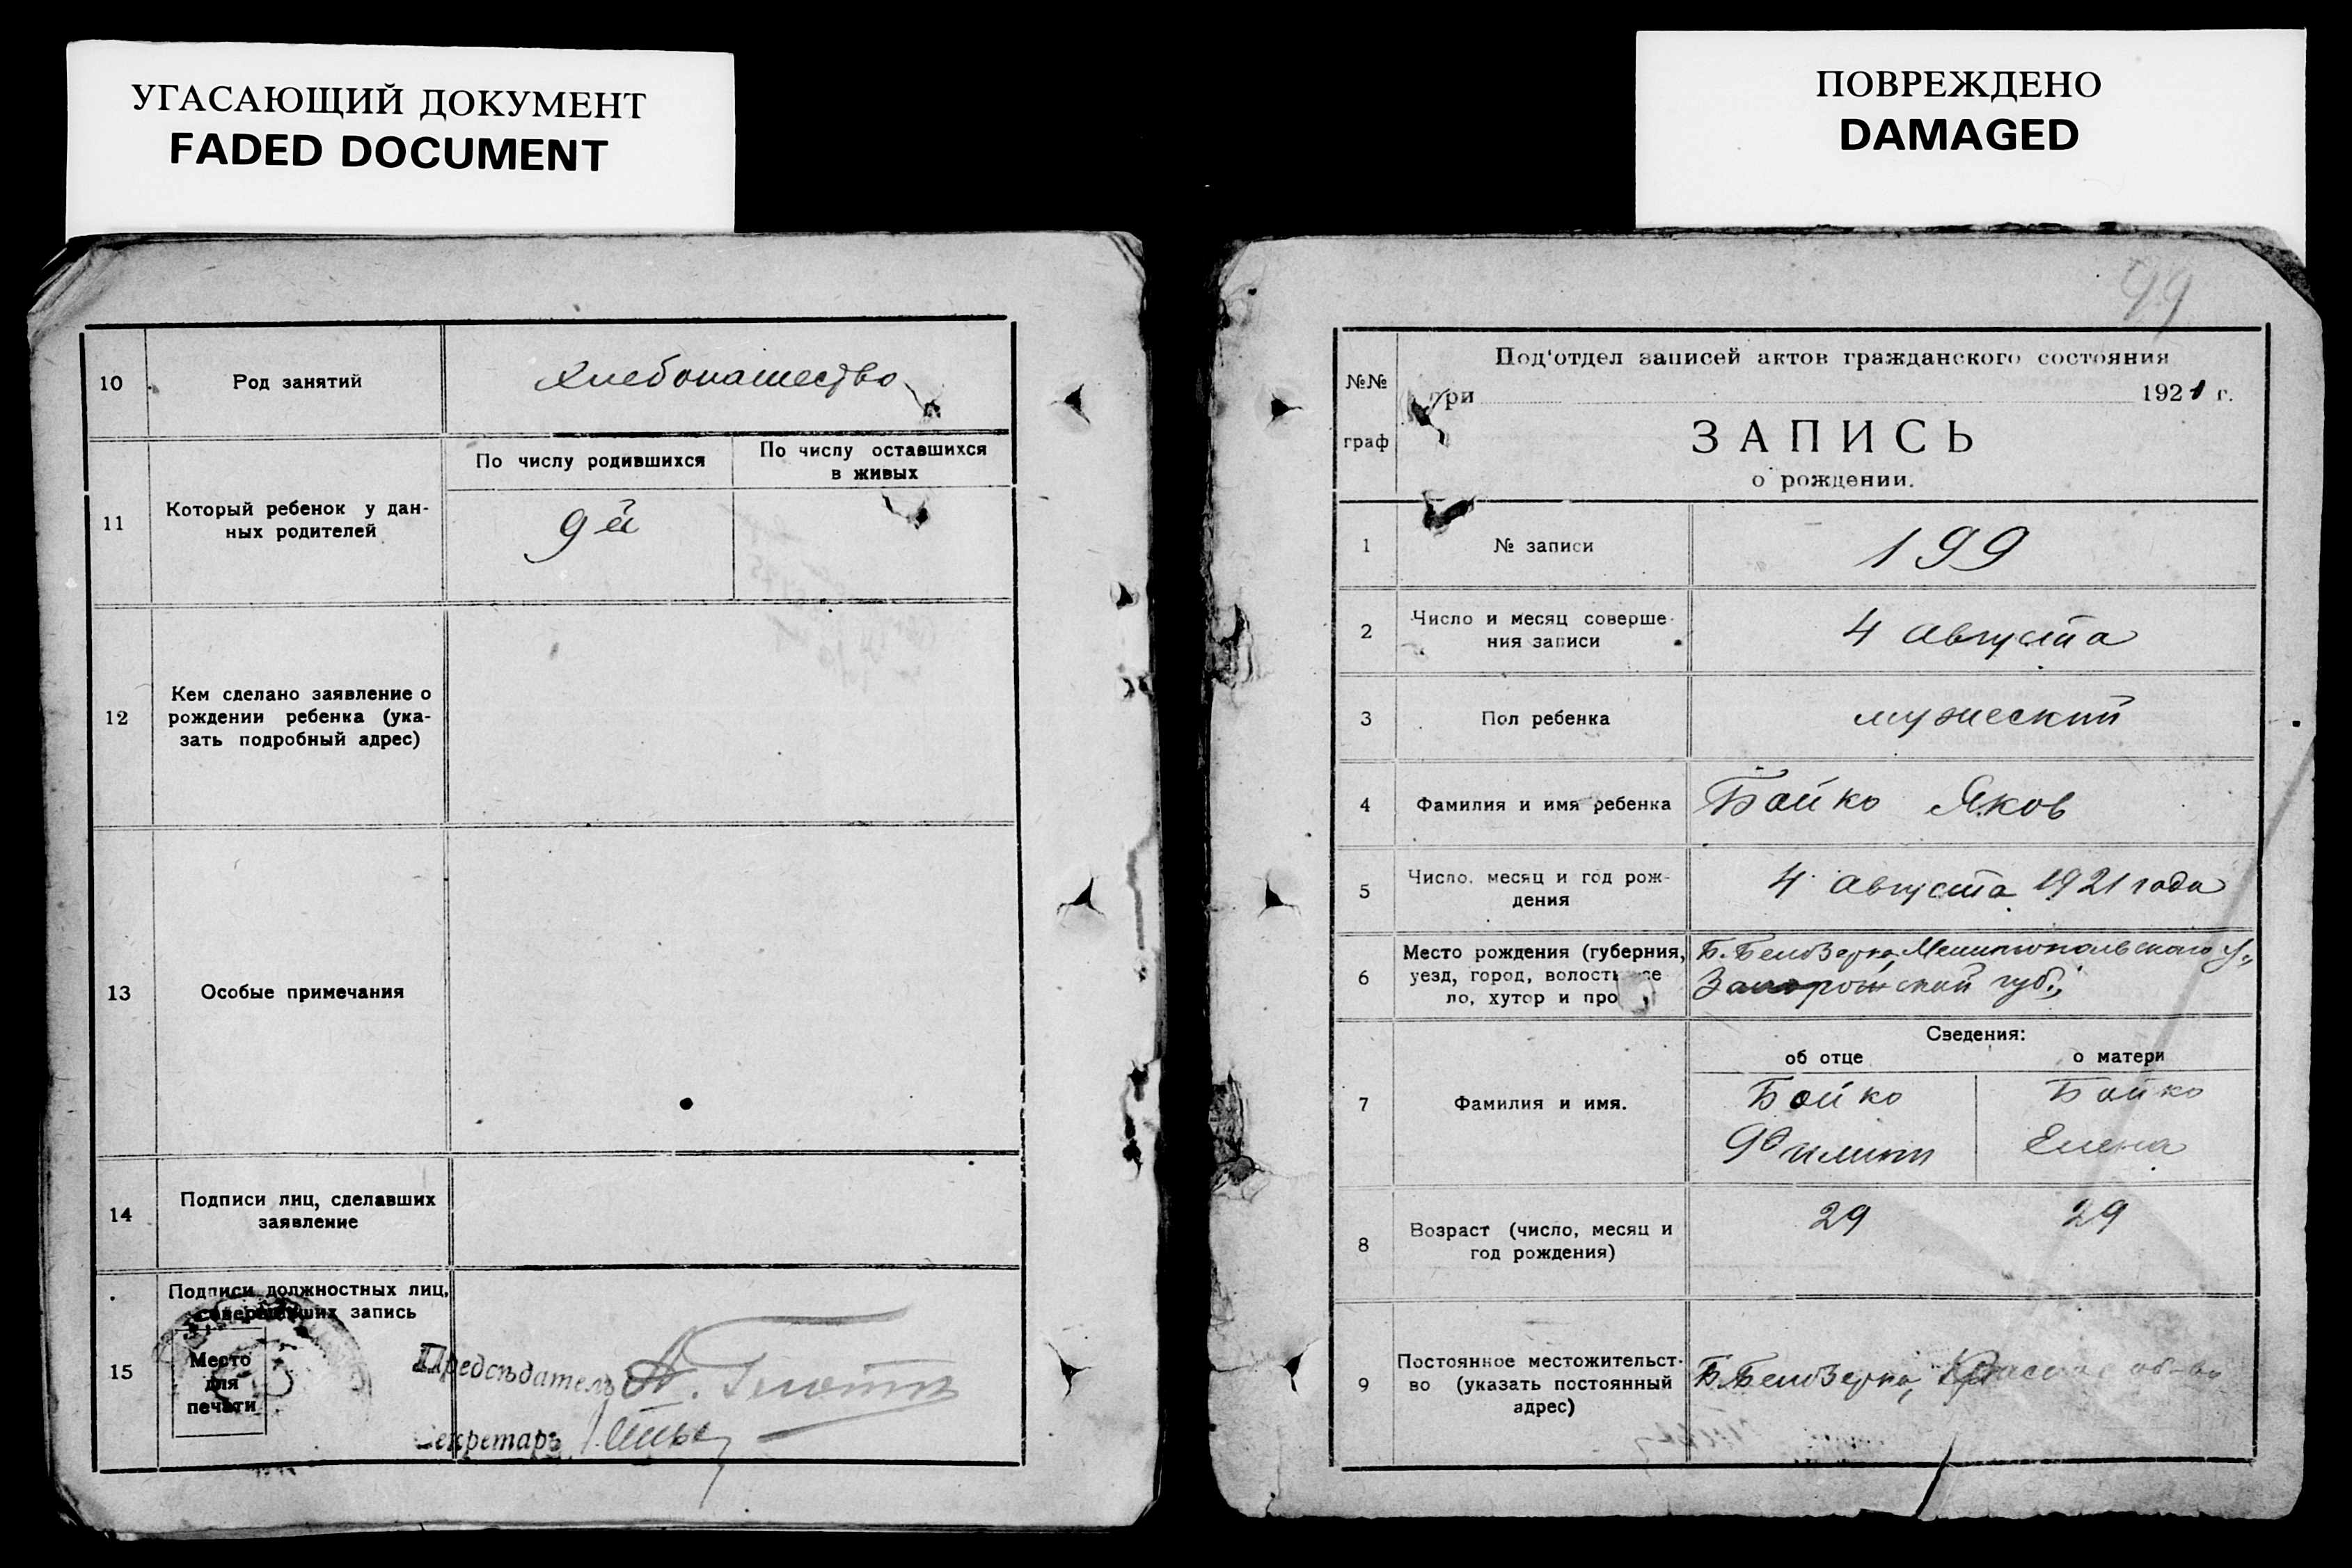 УГАСАЮЩИЙ ДОКУМЕНТ
FADED DOCUMENT
10 Род занятий Хлебопашество
11 Который ребенок у дан-
ных родителей
По числу родившихся
По числу оставшихся
в живых
9й
12 Кем сделано заявление о
рождении ребенка (ука-
зать подробный адрес)
13 Особые примечания
14 Подписи лиц, сделавших
заявление
15 Подписи должностных лиц,
совершивших запись
Место
для
печати
Председатель
Секретарь
ПОВРЕЖДЕНО
DAMAGED
99
№№
граф
Под'отдел записей актов гражданского состояния
при 1921 г.
ЗАПИСЬ
о рождении.
1 № записи 199
2 Число и месяц соверше-
ния записи
4 августа
3 Пол ребенка мужеский
4 Фамилия и имя ребенка Бойко Яков
5 Число, месяц и год рож-
дения
4 августа 1921 года
6 Место рождения (губерния,
уезд, город, волость, се
ло, хутор и про
Б. Белозерка, Мелитопольского у.,
Запорожской губ.,
7 Фамилия и имя.
Сведения:
об отце о матери
Бойко Бойко
Филипп Елена
8 Возраст (число, месяц и
год рождения)
29 29
9 Постоянное местожительст-
во (указать постоянный
адрес)
Б. Белозерка, об-ва